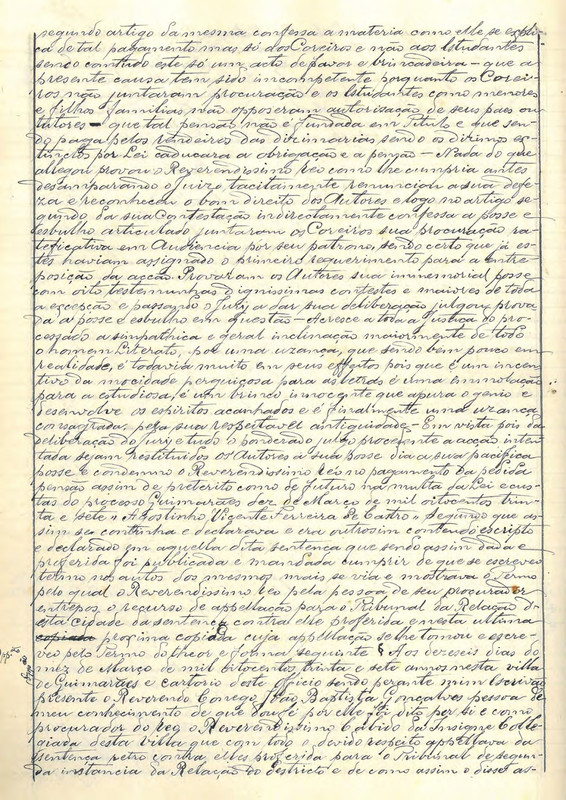 segundo artigo da mesma confessa a materia como elle se expli-
ca de tal pagamento mas só dos Coreiros e não aos Estudantes
sendo comtudo este só um acto de favor e brincadeira - que a
presente causa tem sido incompetente porquanto os Corei-
ros não juntaram procuração e os Estudantes como menores
e filhos familias, não opposeram autorisação de seus paes ou
tutores - que tal pensão não é fundada em Titulo e que sen-
do paga pelos rendeiros das dizimarias sendo os dizimos ex-
tinctos por Lei caducara a obrigação e a penção - Nada do que
allegou provou o Reverendissimo reo como lhe cumpria antes
desamparando o juizo, tacitamente renunciou a sua defe-
za e reconheceu o bom direito dos Autores e logo no artigo se-
gundo da sua Contestação indirectamente confessa a posse e
esbulho articulado juntaram os Coreiros sua procuração ra-
teficativa em Audiencia por seu patrono, sendo certo que já es-
tes haviam assignado o primeiro requerimento para a entre-
posição da acção. Provaram os Autores sua immemorial posse
com oito testemunhas dignissimas contestes e maiores de toda
a excepção e passando o Jury a dar sua deliberação julgou prova-
da a posse e esbulho em questão - Acresce a toda a justiça do pro-
cessado a simpathica e geral inclinação maiormente de todo
o homem Literato, por uma uzança, que sendo bem pouco em
realidade, é todavia muito em seus effeitos pois que é um incen-
tivo da mocidade perguiçosa para as letras é uma emmolação
para a estudiosa, é um brinco innocente que apura o genio e
desenvolve os espiritos acanhados e é finalmente uma uzança
consagrada pela sua respeitavel antiguidade - Em vista pois da
deliberação do jury e tudo o ponderado julgo procedente a acção inten-
tada sejam restituidos os Autores á sua posse dia a sua pacifica
posse e condemno o Reverendissimo reo no pagamento da pedida
pensão assim de preterito como de futuro na multa da Lei e cus-
tas do processo Guimarães dez de Março de mil oitocentos trin-
ta e sete = Agostinho Vicente Ferreira de Castro = Segundo que as-
sim se continha e declarava e era outrosim contendo escripto
e declarado em aquella dita sentença que sendo assim dada e
proferida foi publicada e mandada cumprir de que se escreveu
termo nos autos dos mesmos mais se via e mostrava o Termo
pelo qual o Reverendissimo reo pela pessoa de seu procurador
entrepos o recurso de appellação para o Tribunal da Relação d-
esta cidade da sentença contra elle proferida e nesta ultima
copiada proxima copiada cuja appellação se lhe tomou e escre-
veu pelo Termo do theor e forma seguinte § Aos deseseis dias do
mez de Março de mil oitocentos trinta e sete annos nesta villa
de Guimarães e cartorio deste officio sendo perante mim Escrivão
presente o Reverendo Conego João Baptista Gonçalves pessoa de
meu conhecimento de que dou fé por elle foi dito per si e como
procurador do reo o Reverendissimo Cabido da Insigne Colle-
giada desta villa que com todo o devido respeito appellava da
sentença retro contra elles proferida para o Tribunal de segun-
da instancia da Relação do destricto e de como assim o disse as-